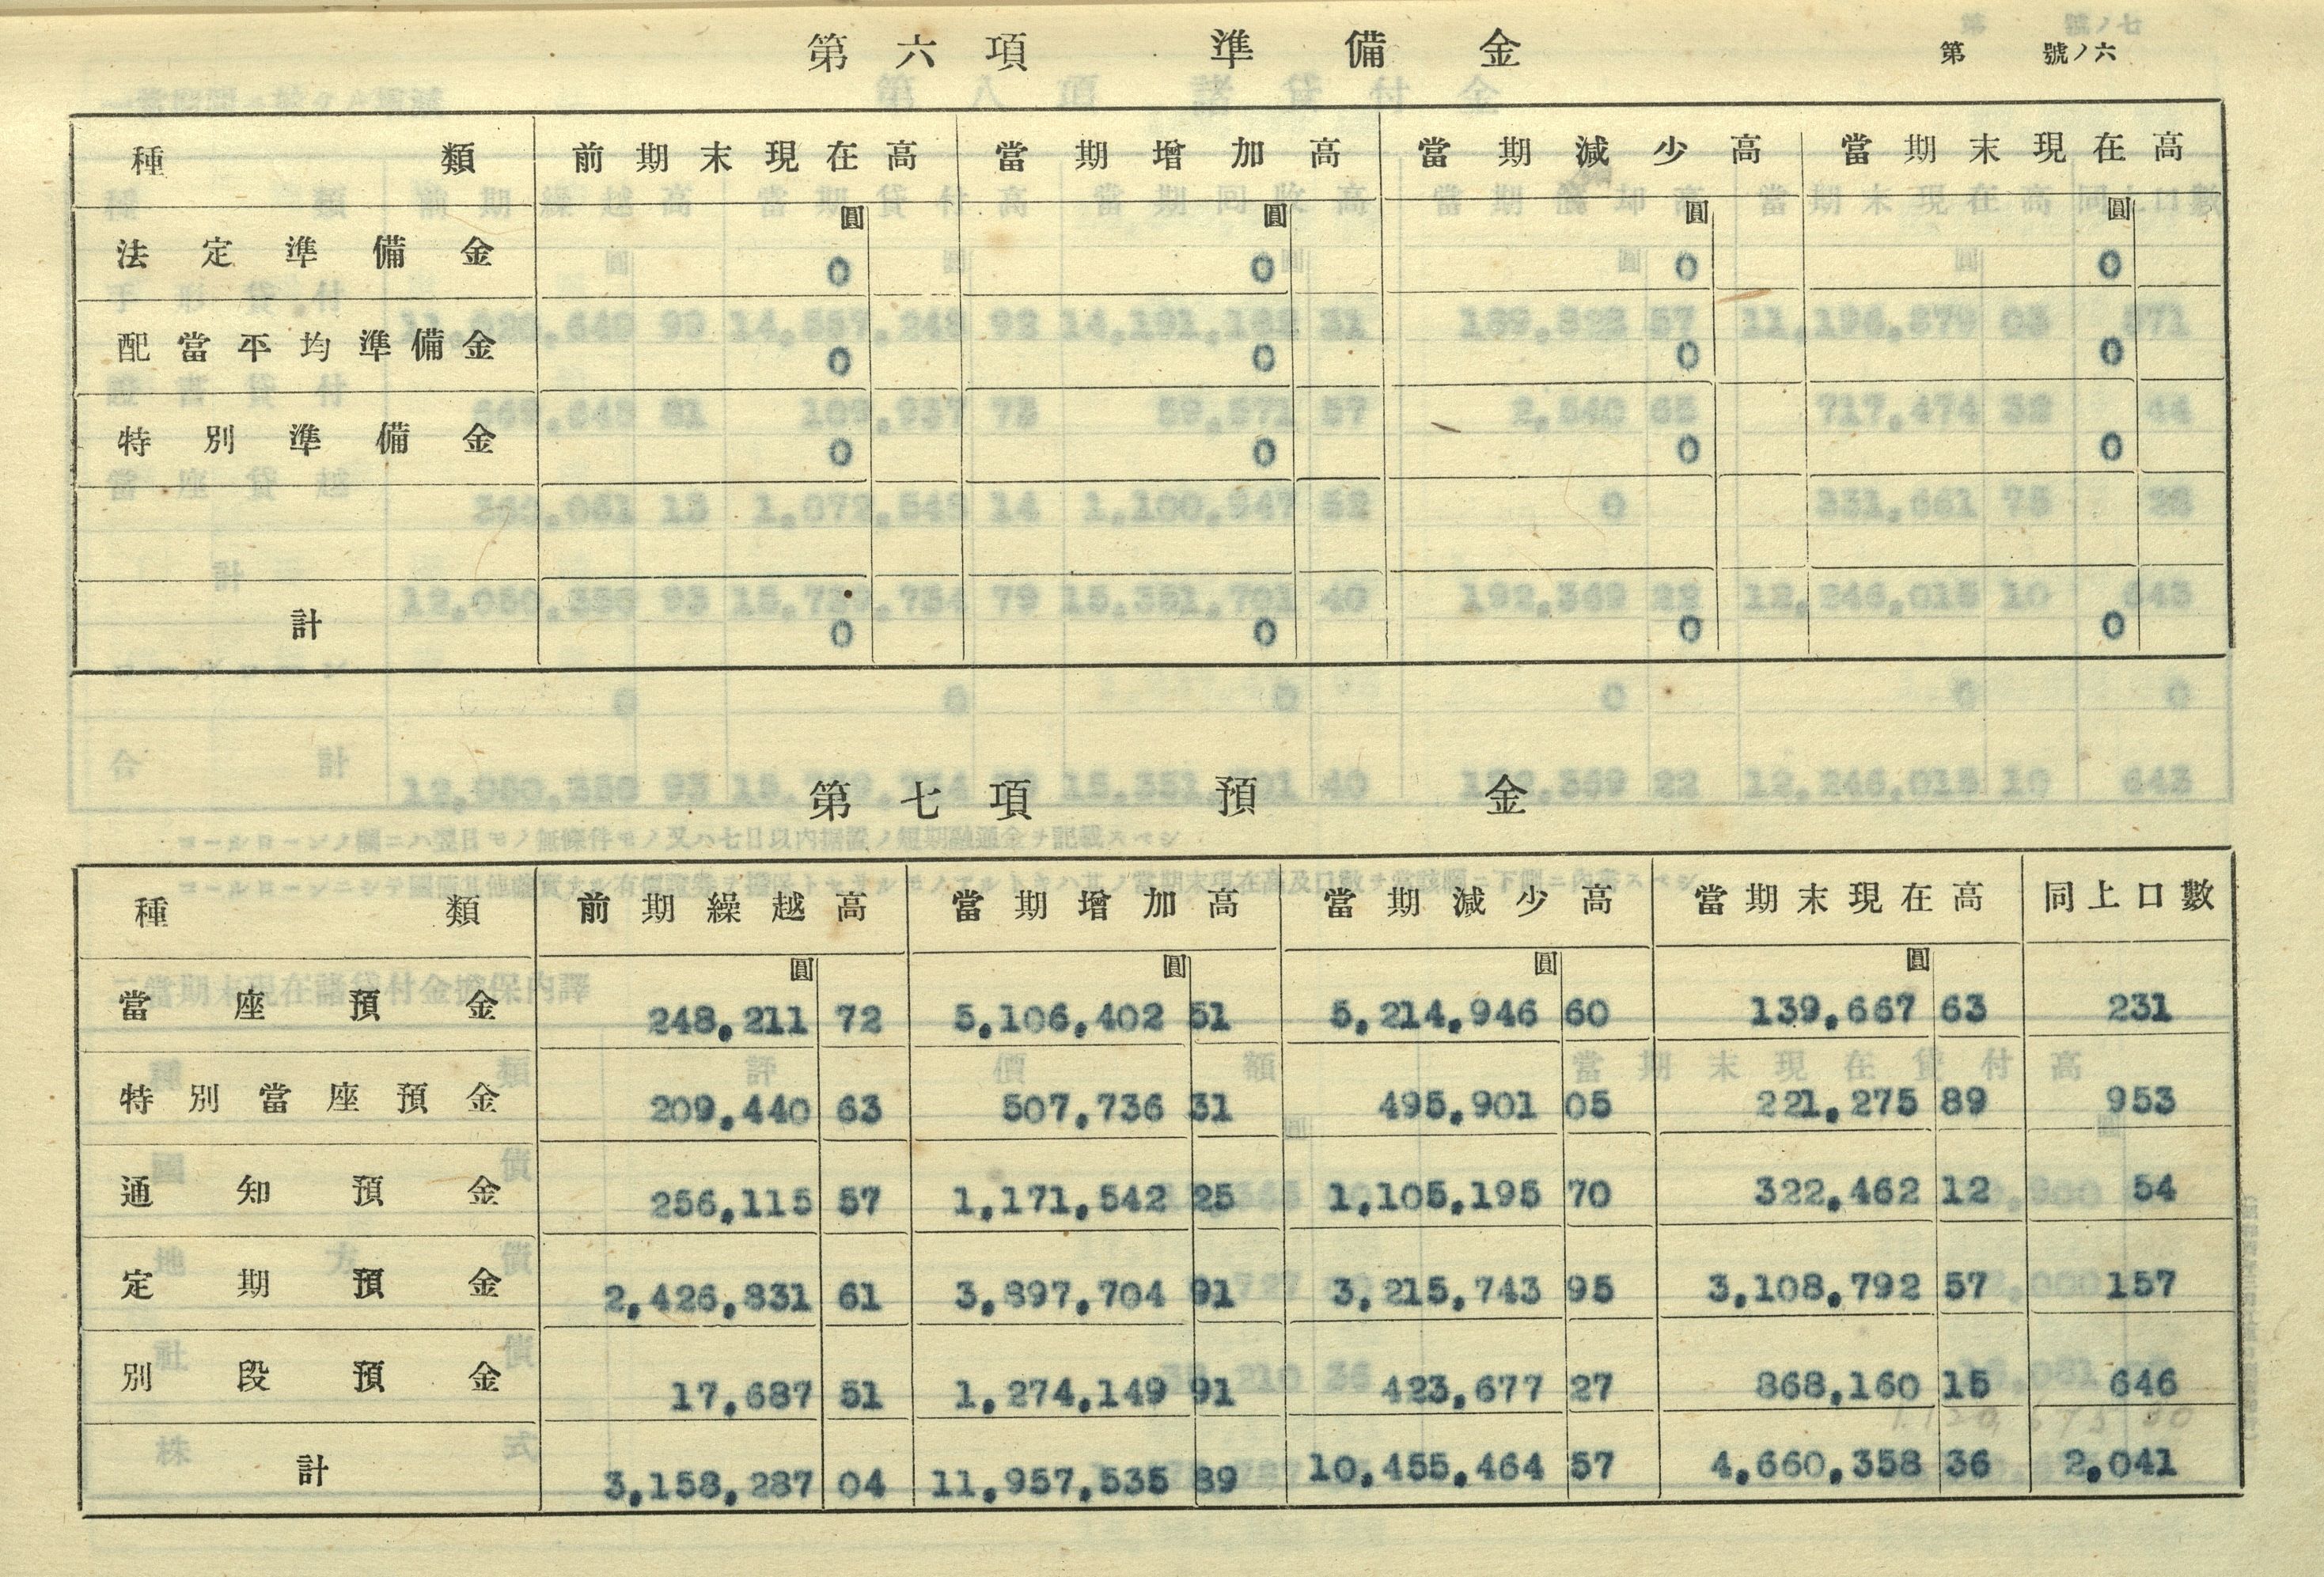 第六項 準備金
第 號ノ六
種類 前期末現在高 當期增加高 當期減少高 當期末現在高
圓 圓 圓 圓
法定準備金 0 0 0 0
配當平均準備金 0 0 0 0
特別準備金 0 0 0 0
計 0 0 0 0
第七項 預金
種類 前期繰越高 當期增加高 當期減少高 當期末現在高 同上口數
圓 圓 圓 圓
當座預金 248,211 72 5,106,402 51 5,214,946 60 139,667 63 231
特別當座預金 209,440 63 507,736 31 495,901 05 221,275 89 953
通知預金 256,115 57 1,171,542 25 1,105,195 70 322,462 12 54
定期預金 2,426,831 61 3,897,704 91 3,215,743 95 3,108,792 57 157
別段預金 17,687 51 1,274,149 91 423,677 27 868,160 15 646
計 3,158,287 04 11,957,535 89 10,455,464 57 4,660,358 36 2,041